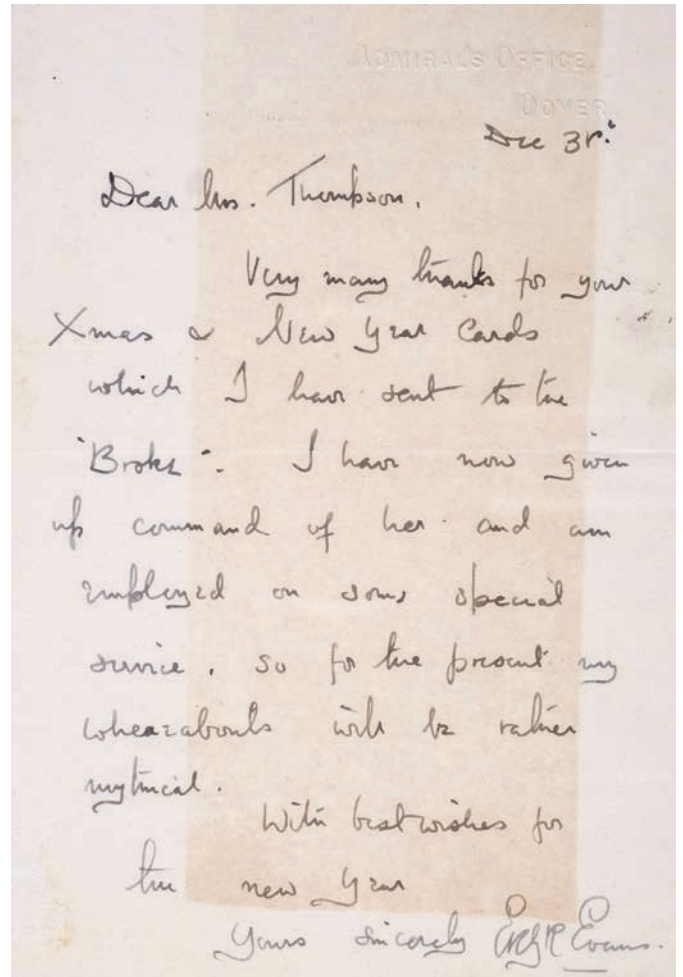 ADMIRAL'S OFFICE,
DOVER.
Dec 31st
Dear Mrs. Thompson,
Very many thanks for your
Xmas & New Year Cards
which I have sent to the
"Broke". I have now given
up command of her and am
employed on some special
service, so for the present my
wheareabouts will be rather
mythical.
With best wishes for
the new year
Yours sincerely ERGR Evans.